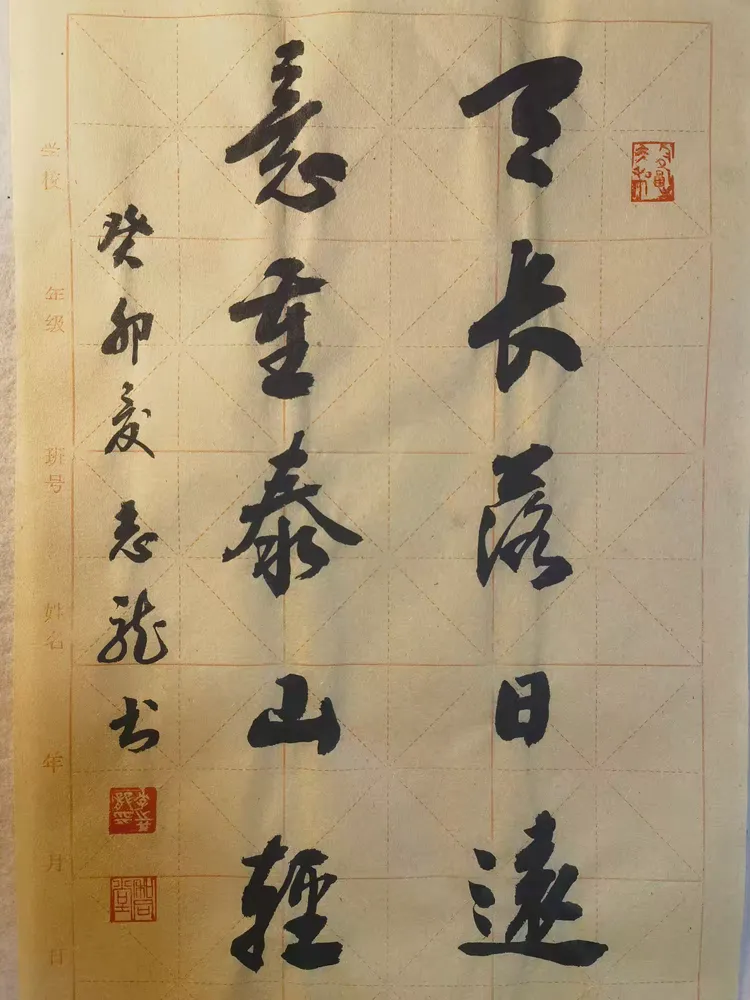 天长落日遠
意重泰山輕
癸卯夏 志龍书
学校 年级 班号 姓名 年 月 日